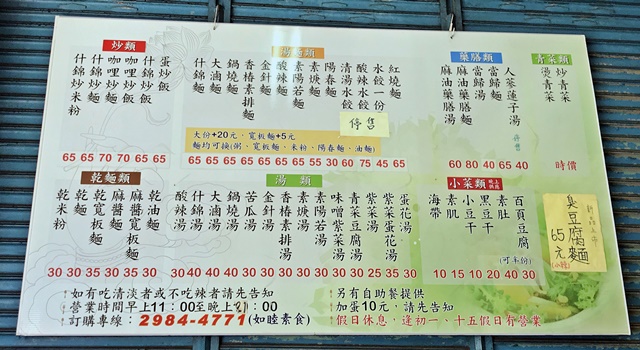 炒類
蛋炒飯
什錦炒飯
咖哩炒飯
咖哩炒麵
什錦炒麵
什錦炒米粉
65 65 70 70 65 65
湯麵類
紅燒麵
水餃一份
酸辣水餃
清湯水餃
陽春麵
素焿麵
酸辣麵
金針麵
香椿素排麵
鍋燒麵
大滷麵
什錦麵
停售
大份+20元, 寬板麵+5元
麵均可換(粥、寬板麵、米粉、陽春麵、油麵)
55 30 60 75 45 65
藥膳類
人蔘蓮子湯
當歸湯
當歸麵
麻油藥膳湯
60 80 40 65 40
青菜類
炒青菜
燙青菜
時價
乾麵類
乾油麵
麻醬麵
麻醬寬板麵
乾寬板麵
乾麵
乾米粉
30 30 35 30 35 30
湯類
蛋花湯
紫菜蛋花湯
紫菜湯
青菜豆腐湯
味噌紫菜湯
素陽若湯
素焿湯
香椿素排湯
金針湯
苦瓜湯
鍋燒湯
大滷湯
什錦湯
酸辣湯
小菜類
百頁豆腐
素肚
黑豆干
小豆干
素肌
海帶
(可半份)
10 15 10 20 40 30
臭豆腐麵
65元
如有吃清淡者或不吃辣者請先告知
營業時間早上11:00至晚上21:00
訂購專線:2984-4771(如睦素食)
另有自助餐提供
加蛋10元,請先告知
假日休息,逢初一、十五假日有營業